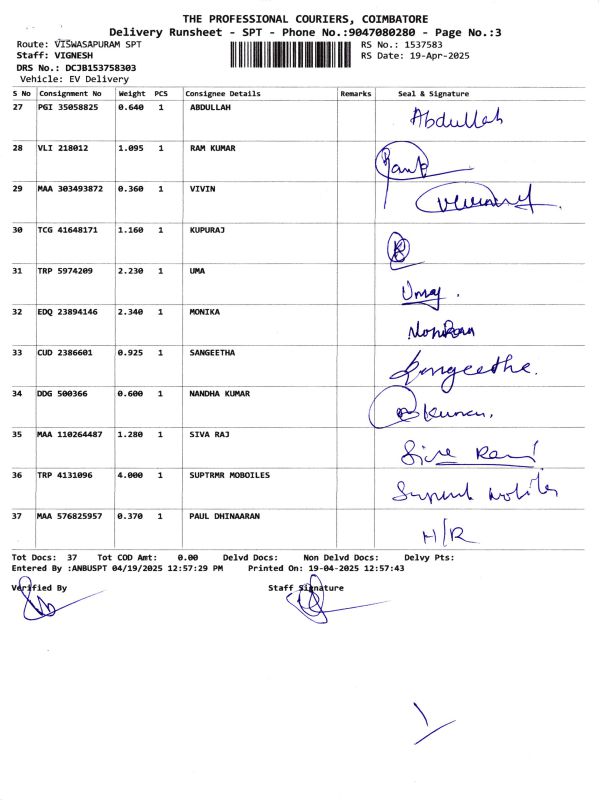 THE PROFESSIONAL COURIERS, COIMBATORE
Delivery Runsheet - SPT - Phone No.:9047080280 - Page No.:3
Route: VISWASAPURAM SPT RS No.: 1537583
Staff: VIGNESH RS Date: 19-Apr-2025
DRS No.: DCJB153758303
Vehicle: EV Delivery
S No Consignment No Weight PCS Consignee Details Remarks Seal & Signature
27 PGI 35058825 0.640 1 ABDULLAH Abdullah
28 VLI 218012 1.095 1 RAM KUMAR
29 MAA 303493872 0.360 1 VIVIN
30 TCG 41648171 1.160 1 KUPURAJ
31 TRP 5974209 2.230 1 UMA
32 EDQ 23894146 2.340 1 MONIKA
33 CUD 2386601 0.925 1 SANGEETHA Sangeetha.
34 DDG 500366 0.600 1 NANDHA KUMAR
35 MAA 110264487 1.280 1 SIVA RAJ
36 TRP 4131096 4.000 1 SUPTRMR MOBOILES
37 MAA 576825957 0.370 1 PAUL DHINAARAN H/R
Tot Docs: 37 Tot COD Amt: 0.00 Delvd Docs: Non Delvd Docs: Delvy Pts:
Entered By :ANBUSPT 04/19/2025 12:57:29 PM Printed On: 19-04-2025 12:57:43
Verified By Staff Signature